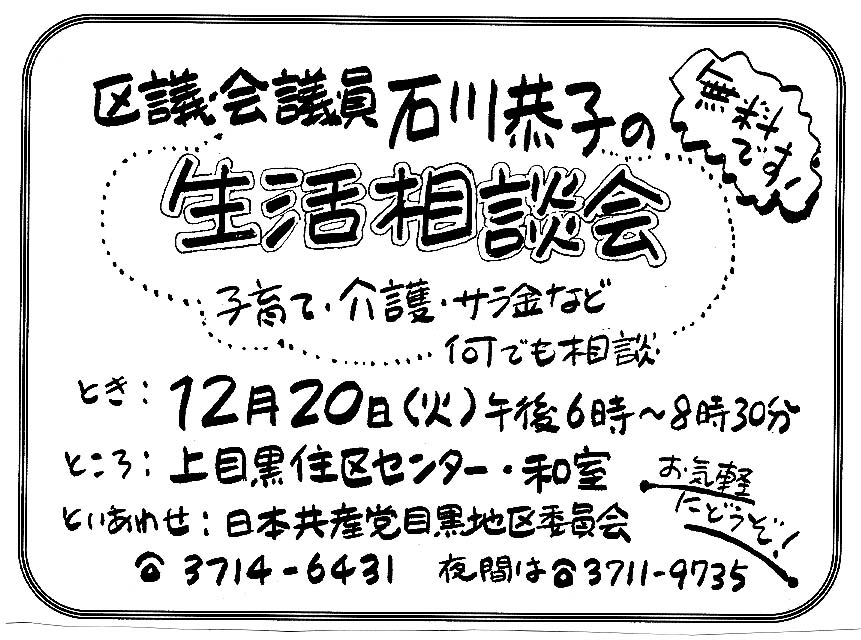 区議会議員石川恭子の
無料
です!
生活相談会
子育て・介護・サラ金など
何でも相談
とき：12月20日(火)午後6時～8時30分
ところ：上目黒住区センター・和室
お気軽
にどうぞ!
といあわせ：日本共産党目黒地区委員会
☎3714-6431 夜間は☎3711-9735